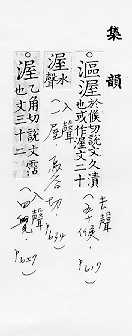 集韻
漚渥
於候切說文久漬
也或作渥文二十
去聲
五十候、
渥
水
聲
入聲
一屋、烏谷切、
渥
乙角切說文霑
也文三十二
入聲
四覺、
p.657